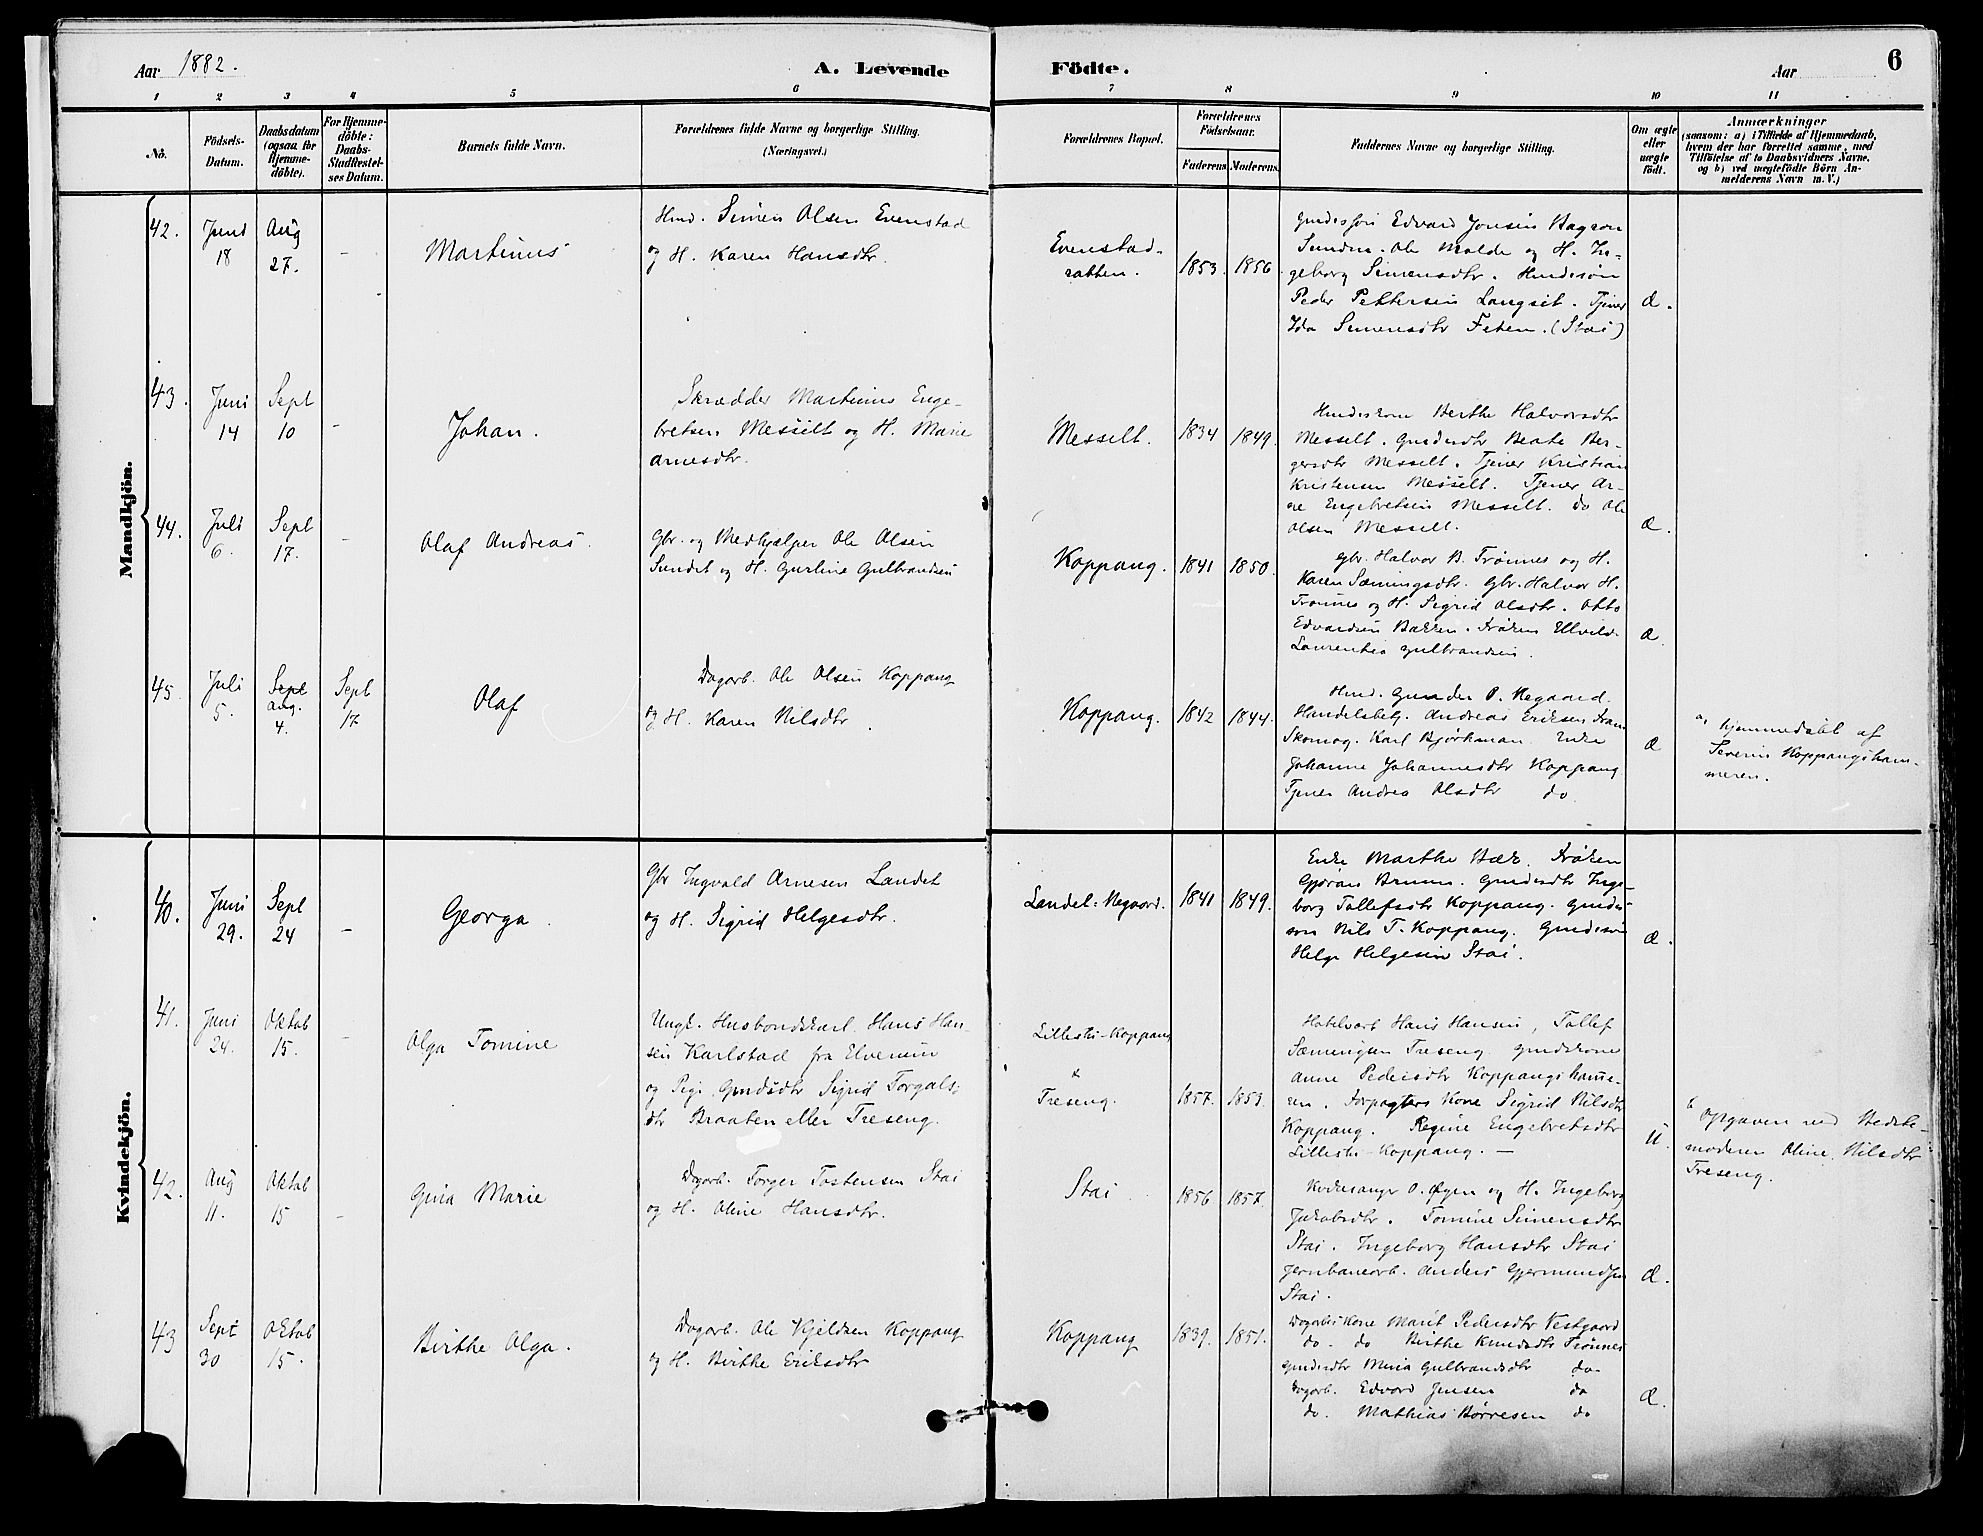 Aar 1882.
A. Levende Födte.
Aar
6
1 2 3 4 5 6 7 8 9 10 11
No.
Födsels-Datum.
Daabsdatum (ogsaa for Hjemme-döbte).
For Hjemme-döbte: Daabs-Stadfæstel-ses Datum.
Barnets fulde Navn.
Forældrenes fulde Navne og borgerlige Stilling.
(Næringsvei.)
Forældrenes Bopæl.
Forældrenes Födselsaar.
Faderens. Moderens.
Faddernes Navne og borgerlige Stilling.
Om ægte eller uægte födt.
Anmærkninger
(saasom: a) i Tilfælde af Hjemmedaab,
hvem der har forrettet samme, med
Tilföielse af to Daabsvidners Navne,
og b) ved uægtefödte Börn An-
melderens Navn m. V.)
Mandkjön.
42.
Juni 18
Aug 27.
-
Martinus
Hmd. Simen Olsen Evenstad
og H. Karen Hansdtr.
Evenstad-
1853. 1856.
Edvard Jonsen
Ole Molde og H. In-
geborg Simensdtr. Hmdssøn
Peder Pettersen Langset. Tjener
Ida Simensdtr Feten. (Stai)
Æ.
43.
Juni 14
Sept 10
-
Johan.
Skrædder Martinus Enge-
bretsen Messelt og H. Marie
Arnesdtr.
Messelt.
1834 1849.
Hmdskone Berthe Halvorsdtr
Messelt. Gmdsdtr Beate Ber-
gersdtr Messelt. Tjener Kristian
Kristensen Messelt. Tjener Ar-
ne Engebretsen Messelt. do Ole
Olsen Messelt.
Æ.
44.
Juli 6.
Sept 17.
-
Olaf Andreas.
Gbr. og Medhjælper Ole Olsen
Sundet og H. Gurline Gulbrandsen
Koppang.
1841 1850.
Gbr. Halvor B. Trønnes og H.
Karen Sæmingsdtr. Gbr. Halvor H.
Trønnes og H. Sigrid Olsdtr. Otto
Edvardsen Bakken. Frøken
Laurentia Gulbrandsen.
Æ
45.
Juli 5.
Sept Aug. 4.
Sept 17
Olaf
Dagarb. Ole Olsen Koppang
og H. Karen Nilsdtr.
Koppang.
1842 1844.
Hmd. Gunder O. Negaard.
Handelsbetj. Andreas Eriksen
Skomag. Karl Bjørkman. Enke
Johanne Johannesdtr Koppang
Tjener Andrea Olsdtr do
Æ
a, hjemmedøbt af
Severin Koppangsham-
meren.
Kvindekjön.
40.
Juni 29.
Sept 24
-
Georga.
Gbr Ingvald Arnesen Landet
og H. Sigrid Helgesdtr.
Landet: Negaard.
1841 1849.
Enke Marthe Bæk. Frøken
Gjøran Bruun. Gmdsdtr Inge-
borg Tollefsdtr Koppang. Gmds-
søn Nils T. Koppang. Gmdssøn
Helge Helgesen Stai.
Æ.
41.
Juni 24.
Oktob 15.
-
Olga Tomine
Ungk. Husbondskarl Hans Han-
sen Karlstad fra Elverum
og Pige Gmdsdtr Sigrid Torgals-
dtr Braaten eller Treseng.
Lillestu-Koppang
&
Treseng.
1857. 1853.
Hotelvært Hans Hansen, Tollef
Sæmingsen Treseng. Gmdskone
Anne Pedersdtr Koppangshamme-
ren. Forpagters Kone Sigrid Nilsdtr
Koppang. Regine Engebretsdtr
Lillestu-Koppang. —
U.
b Opgaven ved Bedste-
moderen Oline Nilsdtr
Treseng.
42.
Aug 11.
Oktob 15
-
Gina Marie
Dagarb. Torger Tostensen Stai
og H. Oline Hansdtr.
Stai.
1856 1857.
Kirkesanger O. Øyen og H. Ingeborg
Jakobsdtr. Tomine Simensdtr
Stai. Ingeborg Hansdtr Stai
Jernbanearb. Anders Gjermundsen
Stai.
Æ.
43
Sept 30
Oktob 15.
Birthe Olga.
Dagarb. Ole Kjeldsen Koppang
og H. Birthe Eriksdtr
Koppang
1839. 1851.
Dagarbs Kone Marit Pedersdtr Vestgaard
do. do Birthe Knudsdtr Trønnes
Gmdsdtr Maria Gulbrandsdtr do
Dagarb. Edvard Jensen do
do. Mathias Børresen do
Æ.